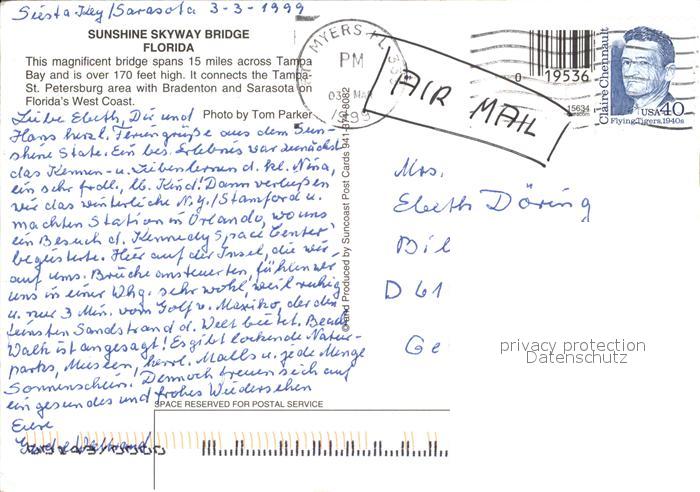 Siesta Key/Sarasota 3-3-1999
SUNSHINE SKYWAY BRIDGE
FLORIDA
This magnificent bridge spans 15 miles across Tampa
Bay and is over 170 feet high. It connects the Tampa-
St. Petersburg area with Bradenton and Sarasota on
Florida's West Coast.
Photo by Tom Parker
Liebe Ebeth, Die und
Hans herzl. Feriengrüße aus dem Sun-
shine State. Ein bes. Erlebnis war zunächst
das Kennen- u. Liebenlernen d. kl. Nina,
ein sehr frdl., lb. Kind! Dann verließen
wir das winterliche N.Y./Stamford u.
machten Station in Orlando, wo uns
ein Besuch d. Kennedy Space Center
begeisterte. Hier auf der Insel, die wir
auf uns. Brücke ansteuerten, fühlen wir
uns in einer Whg. sehr wohl, weil ruhig
u. nur 3 Min. vom Golf v. Mexiko, der den
feinsten Sandstrand d. Welt bietet. Beach
Walk ist angesagt! Es gibt lockende Natur-
parks, Museen, herrl. Malls u. jede Menge
Sonnenschein. Dennoch freuen sich auf
ein gesundes und frohes Wiedersehen
Eure
and Produced by Suncoast Post Cards 941-374-8082
MYERS, FL
PM
03 MAR
1999
AIR MAIL
0 19536
15634
Claire Chennault
USA 40
Flying Tigers, 1940s
Mrs.
Ebeth Döring
Bil
D 61
Ge
privacy protection
Datenschutz
SPACE RESERVED FOR POSTAL SERVICE